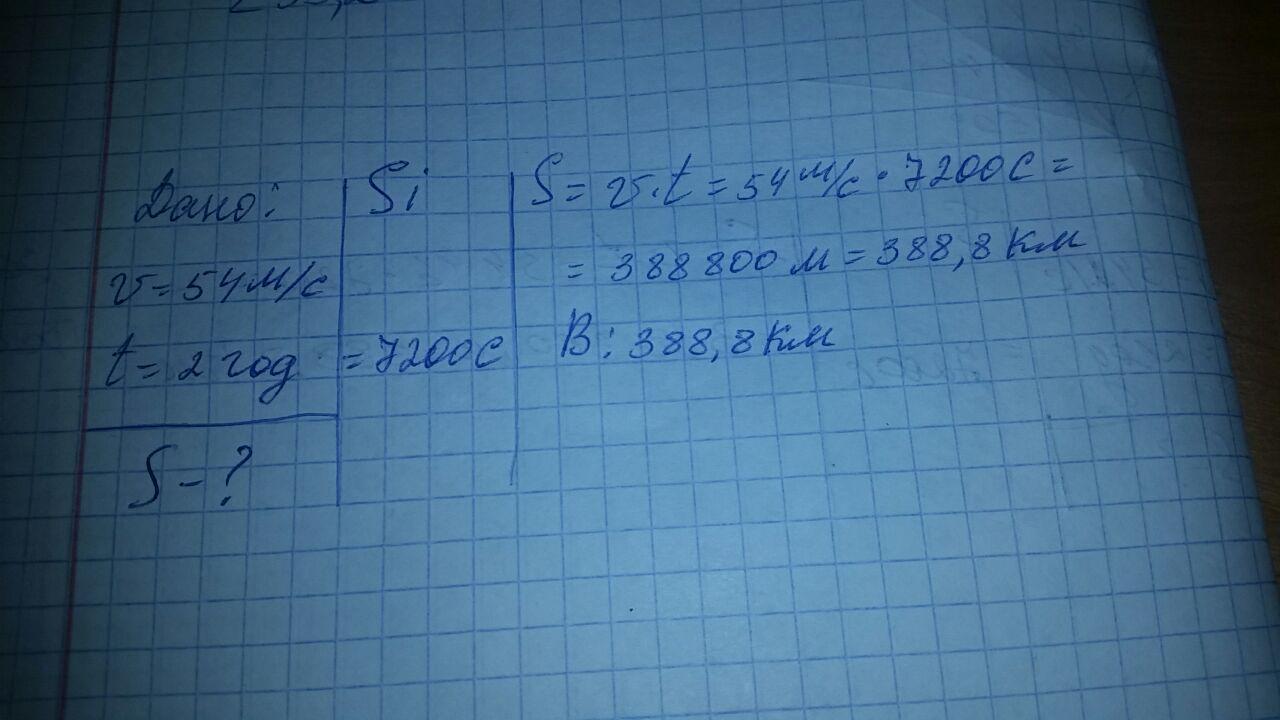 Дано:
v = 54 м/с
t = 2 год
S - ?
Si
= 7200 с
S = v · t = 54 м/с · 7200 с =
= 388 800 м = 388,8 км
В: 388,8 км